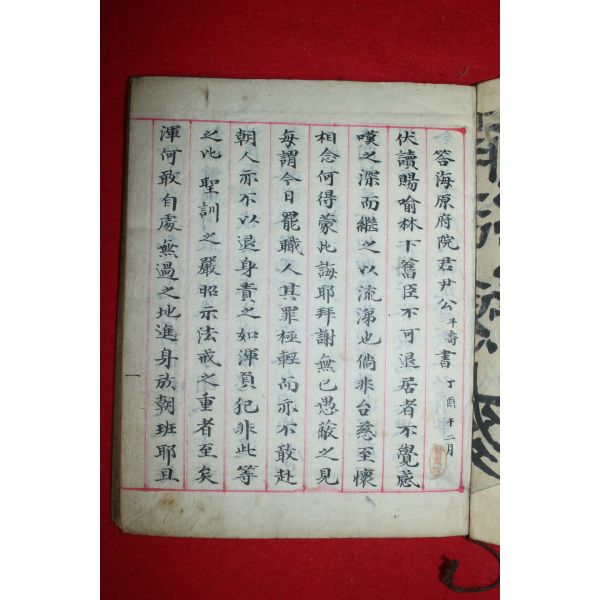 答海原府院君尹公斗壽書 丁酉十二月
伏讀賜喻林下舊臣不可退居者不覺感
嘆之深而繼之以流涕也倘非台慈至懷
相念何得蒙此誨耶拜謝無已愚蔽之見
每謂今日罷職人其罪極輕而亦不敢赴
朝人亦不以退身責之如渾負犯非此等
之比 聖訓之嚴昭示法戒之重者至矣
渾何敢自處無過之地進身於朝班耶且
一